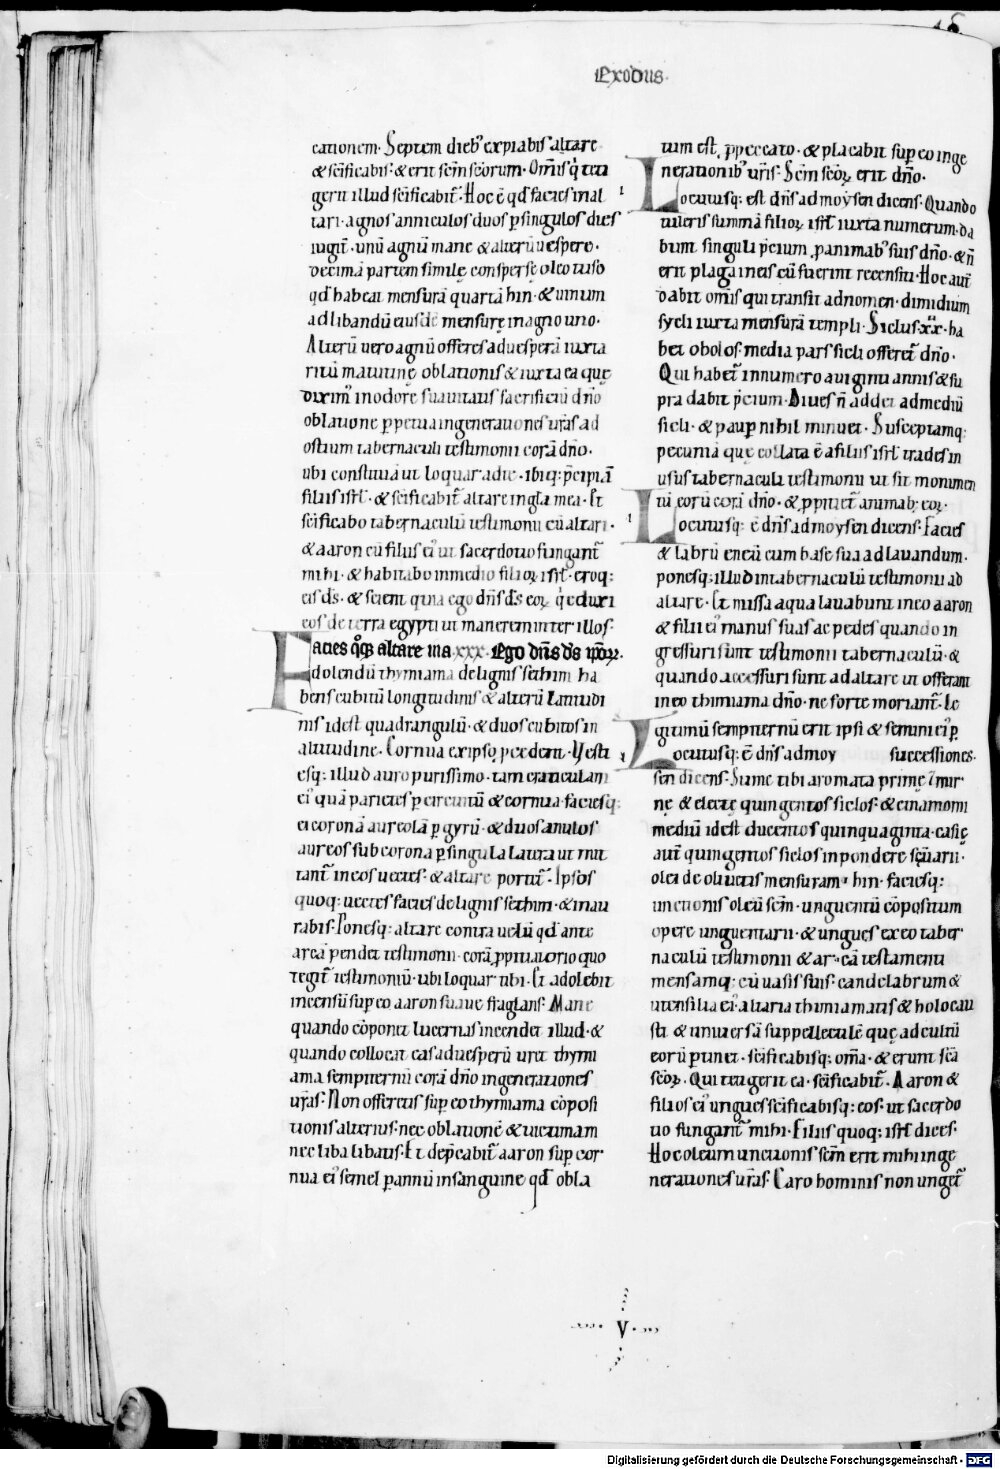 Exodus.
cationem. Septem dieb' expiabis altare
& scificabis. & erit scm scorum. Omis q teti
gerit illud scificabit. Hoc e qd facies in al
tari. agnos anniculos duos p singulos dies
iugit. unu agnu mane & alteru uespero.
decima partem simile consperse oleo tuso
qd habeat mensura quarta hin. & uinum
ad libandu eiusde mensure in agno uno.
Alteru uero agnu offeres ad uespera iuxta
ritu matutine oblationis & iuxta ea que
dixim' in odore suauitatis sacrificiu dno
oblatione ppetua in generationes uras ad
ostium tabernaculi testimonii cora dno.
ubi constitua ut loquar ad te. ibiq: pcipia
filiis isrl. & scificabit altare in gla mea. Et
scificabo tabernaculu testimonii cu altari.
& aaron cu filiis ei' ut sacerdotio fungant
mihi. & habitabo in medio filior isrl. eroq:
eis ds. & scient quia ego dns ds eor qi eduxi
eos de terra egypti ut manerem inter illos.
Facies qoq altare in a xxx. Ego dns ds ipor.
dolendu thymiama de lignis sethim ha
bens cubitu longitudinis & alteru latitudi
nis id est quadrangulu. & duos cubitos in
altitudine. Cornua ex ipso pcedent. Uesti
esq: illud auro purissimo. tam craticulam
ei' qua parietes p circuitu & cornua. faciesq:
ei corona aureola p gyru. & duos anulos
aureos sub corona p singula latera ut mit
tant in eos uectes. & altare portent. Ipsos
quoq: uectes facies de lignis sethim. & inau
rabis. Ponesq: altare contra uelu qd ante
arca pendet testimonii. cora ppitiatorio quo
tegit testimoniu. ubi loquar tibi. Et adolebit
incensu sup eo aaron suaue fraglans. Mane
quando coponet lucernas incendet illud. &
quando collocat eas ad uesperu uret thymi
ama sempiternu cora dno in generationes
uras. Non offeretis sup eo thymiama coposi
tionis alterius. nec oblatione & uictimam
nec liba libatis. Et depcabit aaron sup cor
nua ei' semel p annu in sanguine qd obla
tum est p peccato. & placabit sup eo in ge
nerationib' uris. Scm scor erit dno.
Locutusq: est dns ad moysen dicens. Quando
tuleris summa filior isrl iuxta numerum. da
bunt singuli pcium p animab' suis dno. & n
erit plaga in eis cu fuerint recensiti. Hoc aut
dabit omis qui transit ad nomen. dimidium
sycli iuxta mensura templi. Siclus. xx. ha
bet obolos. media pars sicli offeret dno.
Qui habet in numero a uiginti annis & su
pra dabit pcium. Diues n addet ad mediu
sicli. & paup nihil minuet. Susceptamq:
pecunia que collata e a filiis isrl trades in
usus tabernaculi testimonii ut sit monimen
tu eoru cora dno. & ppitiet animab: eor.
Locutusq: e dns ad moysen dicens. Facies
& labru eneu cum base sua ad lauandum.
ponesq: illud in tabernaculu testimonii ad
altare. Et missa aqua lauabunt in eo aaron
& filii ei' manus suas ac pedes quando in
gressuri sunt testimonii tabernaculu. &
quando accessuri sunt ad altare ut offerant
in eo thimiama dno. ne forte moriant. Le
gitimu sempiternu erit ipsi & semini ei' p
Locutusq: e dns ad moy successiones.
sen dicens. Sume tibi aromata prime & mir
ne & electe quingentos siclos. & cinamomi
mediu id est ducentos quinquaginta. casie
aut quingentos siclos in pondere scuarii.
olei de oliuetis mensuram. hin. faciesq:
unctionis oleu scm. unguentu copositum
opere unguentarii. & ungues ex eo taber
naculu testimonii & arca testamenti
mensamq: cu uasis suis. candelabrum &
utensilia ei' altaria thimiamatis & holocau
sti. & uniuersa suppellectile que ad cultu
eoru ptinet. scificabisq: oma. & erunt sca
scor. Qui tetigerit ea. scificabit. Aaron &
filios ei' ungues scificabisq: eos. ut sacerdo
tio fungant mihi. Filiis quoq: isrl dices.
Hoc oleum unctionis scm erit mihi in ge
nerationes uras. Caro hominis non unget
V
Digitalisierung gefördert durch die Deutsche Forschungsgemeinschaft - DFG